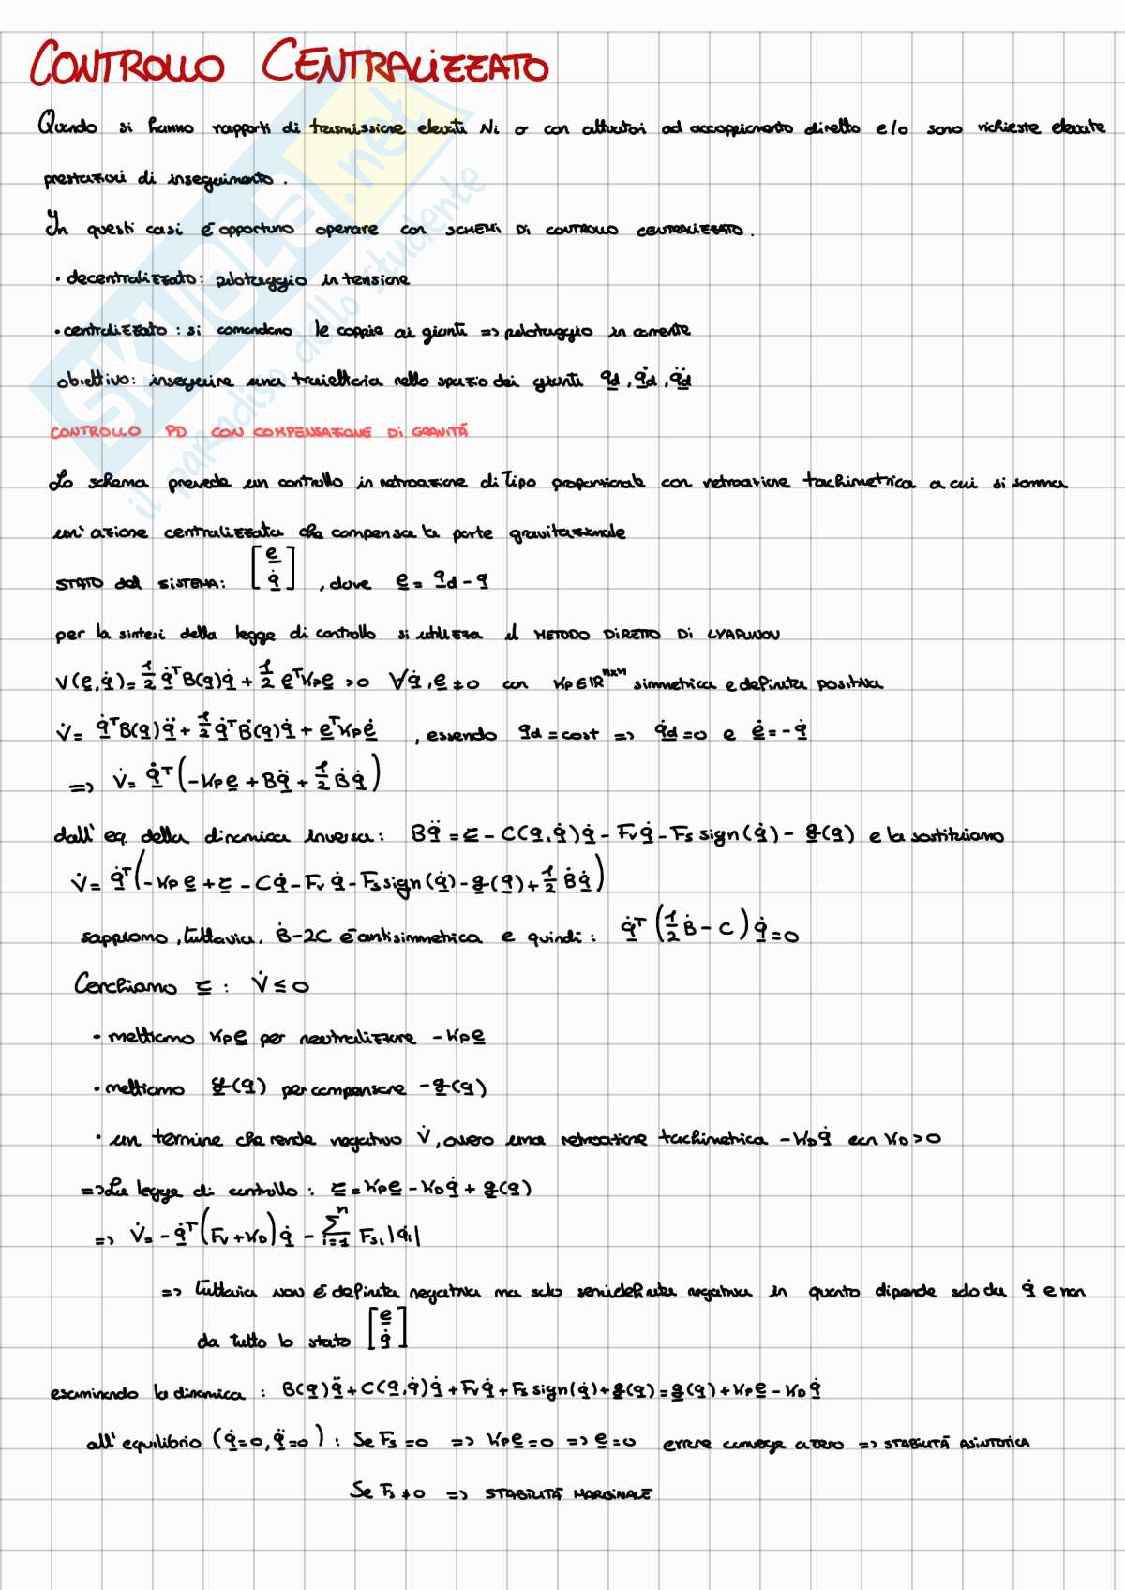 CONTROLLO CENTRALIZZATO
Quando si hanno rapporti di trasmissione elevati Ni o con attuatori ad accoppiamento diretto e/o sono richieste elevate
prestazioni di inseguimento.
In questi casi è opportuno operare con SCHEMI DI CONTROLLO CENTRALIZZATO.
• decentralizzato: pilotaggio in tensione
• centralizzato: si comandano le coppie ai giunti => pilotaggio in corrente
obiettivo: inseguire una traiettoria nello spazio dei giunti q_d, q̇_d, q̈_d
CONTROLLO PD CON COMPENSAZIONE DI GRAVITÁ
Lo schema prevede un controllo in retroazione di tipo proporzionale con retroazione tachimetrica a cui si somma
un'azione centralizzata che compensa la parte gravitazionale
STATO del SISTEMA: [e q̇], dove e = q_d - q
per la sintesi della legge di controllo si utilizza il METODO DIRETTO DI LYAPUNOV
V(e,q̇) = 1/2 q̇ᵀB(q)q̇ + 1/2 eᵀKpe >0 ∀q̇,e ≠0 con Kp∈ℝⁿˣⁿ simmetrica e definita positiva
V̇ = q̇ᵀB(q)q̈ + 1/2 q̇ᵀḂ(q)q̇ + eᵀKpė, essendo qd = cost => q̇d = 0 e ė = -q̇
=> V̇ = q̇ᵀ(-Kpe + Bq̈ + 1/2 Ḃq̇)
dall'eq. della dinamica inversa: Bq̈ = τ - C(q,q̇)q̇ - Fvq̇ - Fs sign(q̇) - g(q) e la sostituiamo
V̇ = q̇ᵀ(-Kp e + τ - Cq̇ - Fv q̇ - Fs sign(q̇) - g(q) + 1/2 Ḃq̇)
sappiamo, tuttavia, Ḃ-2C è antisimmetrica e quindi: q̇ᵀ(1/2 Ḃ - C)q̇ = 0
Cerchiamo τ : V̇ ≤ 0
• mettiamo Kpe per neutralizzare -Kpe
• mettiamo g(q) per compensare -g(q)
• un termine che rende negativo V̇, ovvero una retroazione tachimetrica -K_D q̇ con K_D > 0
=> La legge di controllo: τ = Kpe - K_D q̇ + g(q)
=> V̇ = -q̇ᵀ(Fv + K_D)q̇ - Σⁿᵢ₌₁ Fsᵢ|q̇ᵢ|
=> tuttavia NON è definita negativa ma solo semidefinita negativa in quanto dipende solo da q̇ e non
da tutto lo stato [e q̇]
esaminando la dinamica: B(q)q̈ + C(q,q̇)q̇ + Fvq̇ + Fs sign(q̇) + g(q) = g(q) + Kpe - K_D q̇
all'equilibrio (q̇=0, q̈=0): Se Fs=0 => Kpe=0 => e=0 errore converge a zero => STABILITÁ ASINTOTICA
Se Fs ≠ 0 => STABILITÁ MARGINALE
SKUOLA.net
il paradiso dello studente